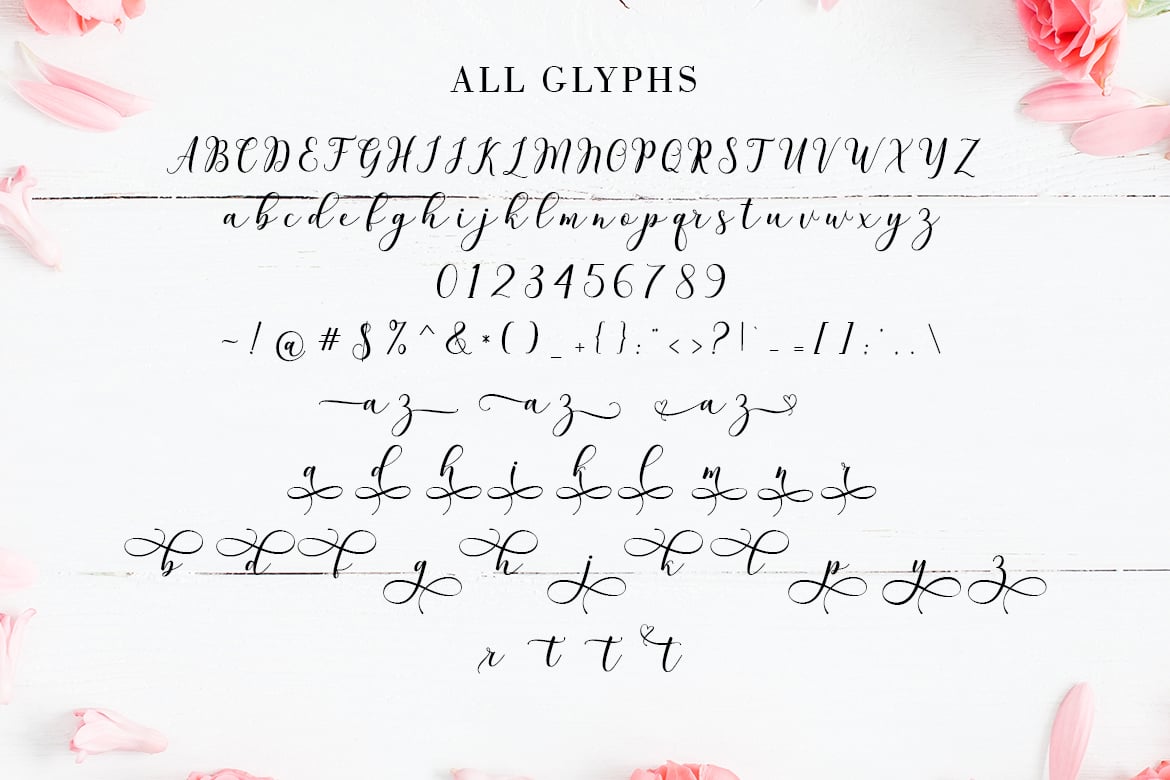 ALL GLYPHS
A B C D E F G H I J K L M N O P Q R S T U V W X Y Z
a b c d e f g h i j k l m n o p q r s t u v w x y z
0 1 2 3 4 5 6 7 8 9
~ ! @ # $ % ^ & * ( ) _ + { } : " < > ? | ` - = [ ] ; ' , . \
a z a z a z
a d h i k l m n r
b d f g h j k l p y z
r t t t